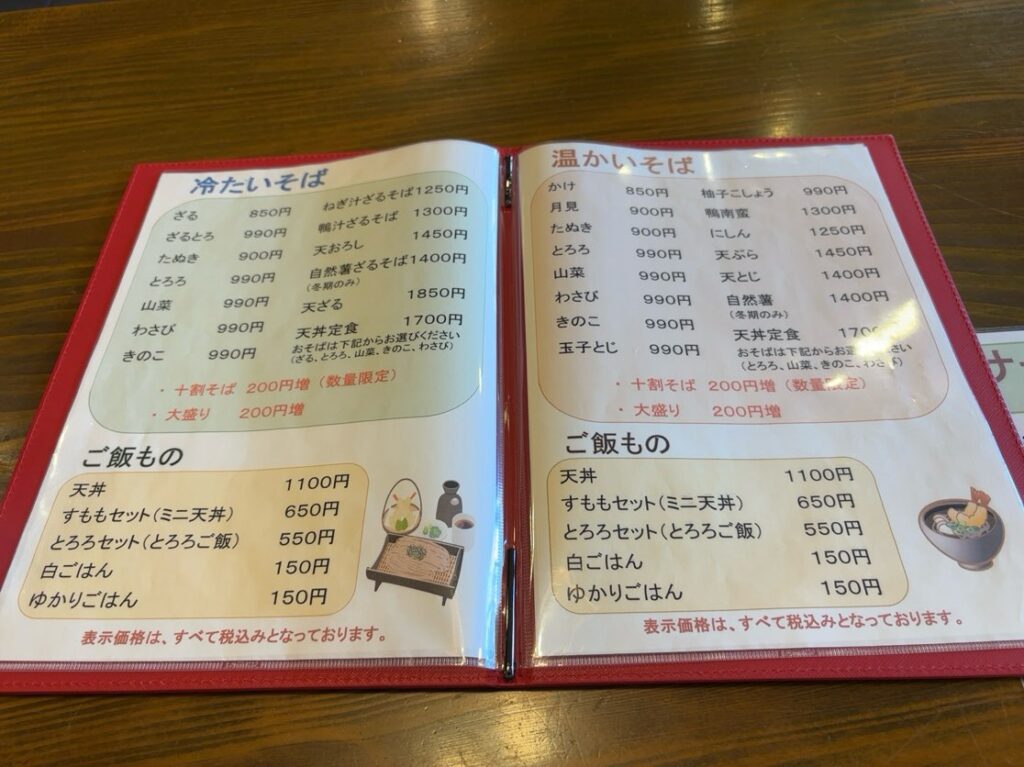 冷たいそば
ざる 850円
ざるとろ 990円
たぬき 900円
とろろ 990円
山菜 990円
わさび 990円
きのこ 990円
ねぎ汁ざるそば1250円
鴨汁ざるそば 1300円
天おろし 1450円
自然薯ざるそば1400円
(冬期のみ)
天ざる 1850円
天丼定食 1700円
おそばは下記からお選びください
(ざる、とろろ、山菜、きのこ、わさび)
・十割そば 200円増(数量限定)
・大盛り 200円増
ご飯もの
天丼 1100円
すももセット(ミニ天丼) 650円
とろろセット(とろろご飯) 550円
白ごはん 150円
ゆかりごはん 150円
表示価格は、すべて税込みとなっております。
温かいそば
かけ 850円
月見 900円
たぬき 900円
とろろ 990円
山菜 990円
わさび 990円
きのこ 990円
玉子とじ 990円
柚子こしょう 990円
鴨南蛮 1300円
にしん 1250円
天ぷら 1450円
天とじ 1400円
自然薯 1400円
(冬期のみ)
天丼定食 1700円
おそばは下記からお選びください
(とろろ、山菜、きのこ、わさび)
・十割そば 200円増(数量限定)
・大盛り 200円増
ご飯もの
天丼 1100円
すももセット(ミニ天丼) 650円
とろろセット(とろろご飯) 550円
白ごはん 150円
ゆかりごはん 150円
表示価格は、すべて税込みとなっております。